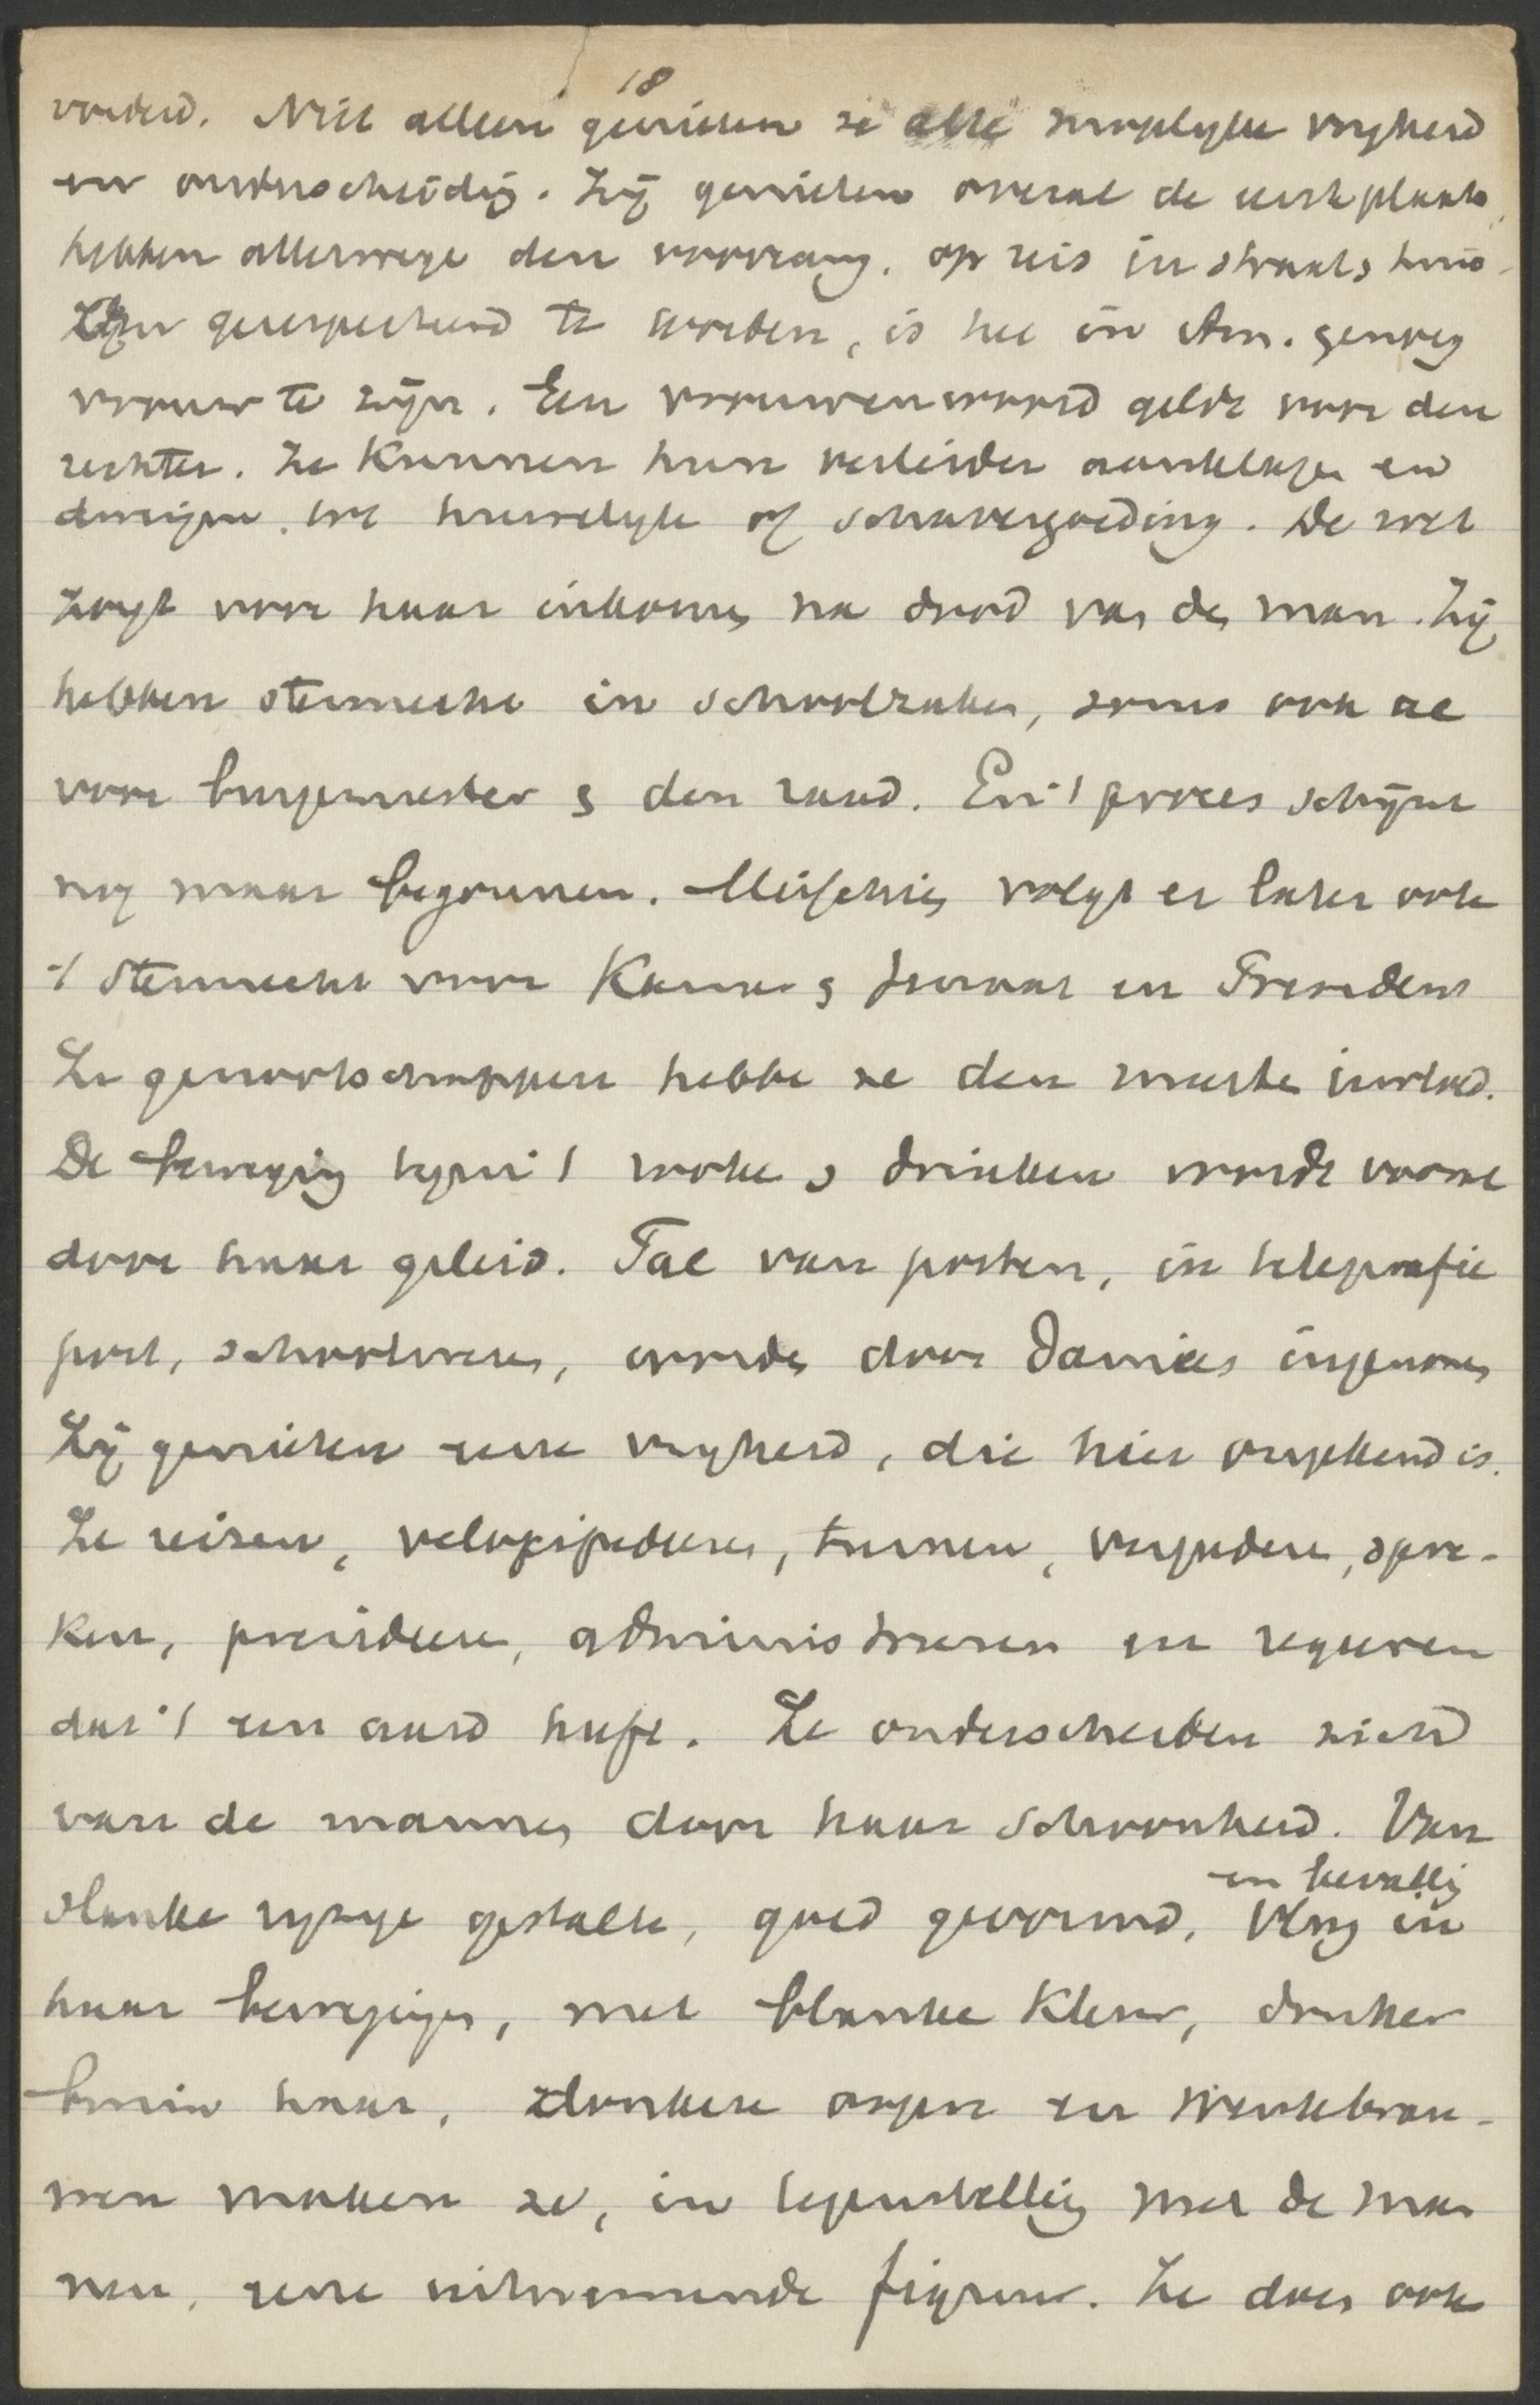 18
voedsd. Niet alleen genieten ze alle mooglyke vryheid
en onderscheidig. Zij genieten overal de eerste plaats,
hebben allerwege den voorrang, op reis in straat, huis.
Om gerespecteerd te worden, is het in Am. genoeg
vrouw te zijn. Een vrouwenwoord geldt voor den
rechter. Ze kunnen hun verleider aanklagen en
dwingen tot huwelyk of schavergoeding. De wet
zorgt voor haar inkomen na dood van de man. Zij
hebben stemrecht in schoolzaken, soms ook al
voor burgemeester & den raad. En 't proces schijnt
nog maar begonnen. Misschien volgt er later ook
't stemrecht voor Kamer & Senaat en President
In genootschappen hebbe ze den meeste invloed.
De beweging tegen 't roken & drinken wordt vooral
door haar geleid. Tal van posten, in telegrafie
post, schoolwezen, worden door Dames ingenomen
Zij genieten eene vryheid, die hier ongekend is.
Ze reizen, velocipederen, turnen, vergaderen, spre-
ken, presideren, administreren en regeeren
dat 't een aard heeft. Ze onderscheiden zich
van de mannen door haar schoonheid. Van
slanke ryzige gestalte, goed gevormd, vlug en bevallig in
haar bewegingen, met blanke kleur, donker
bruin haar, donkere oogen en wenkbrau-
wen maken ze, in tegenstelling met de man
nen, eene uitnemende figuur. Ze doen ook